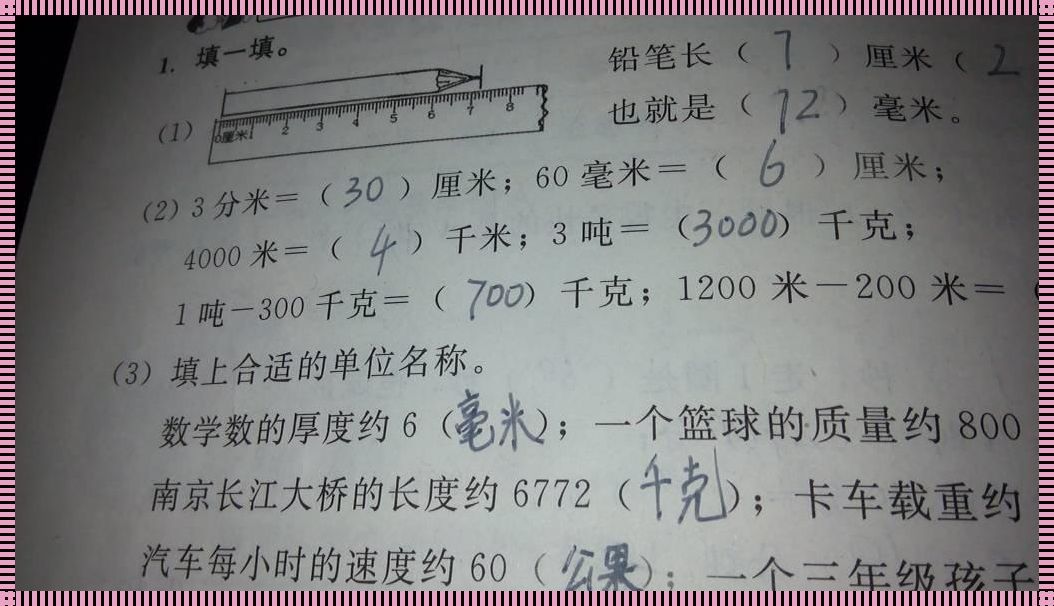 1. 填一填。
(1)
0厘米1 2 3 4 5 6 7 8
铅笔长（ 7 ）厘米（ 2
也就是（ 72 ）毫米。
(2) 3分米＝（ 30 ）厘米；60毫米＝（ 6 ）厘米；
4000米＝（ 4 ）千米；3吨＝（3000）千克；
1吨－300千克＝（ 700）千克；1200米－200米＝（
(3) 填上合适的单位名称。
数学数的厚度约6（毫米）；一个篮球的质量约800
南京长江大桥的长度约6772（千克）；卡车载重约
汽车每小时的速度约60（公果）；一个三年级孩子